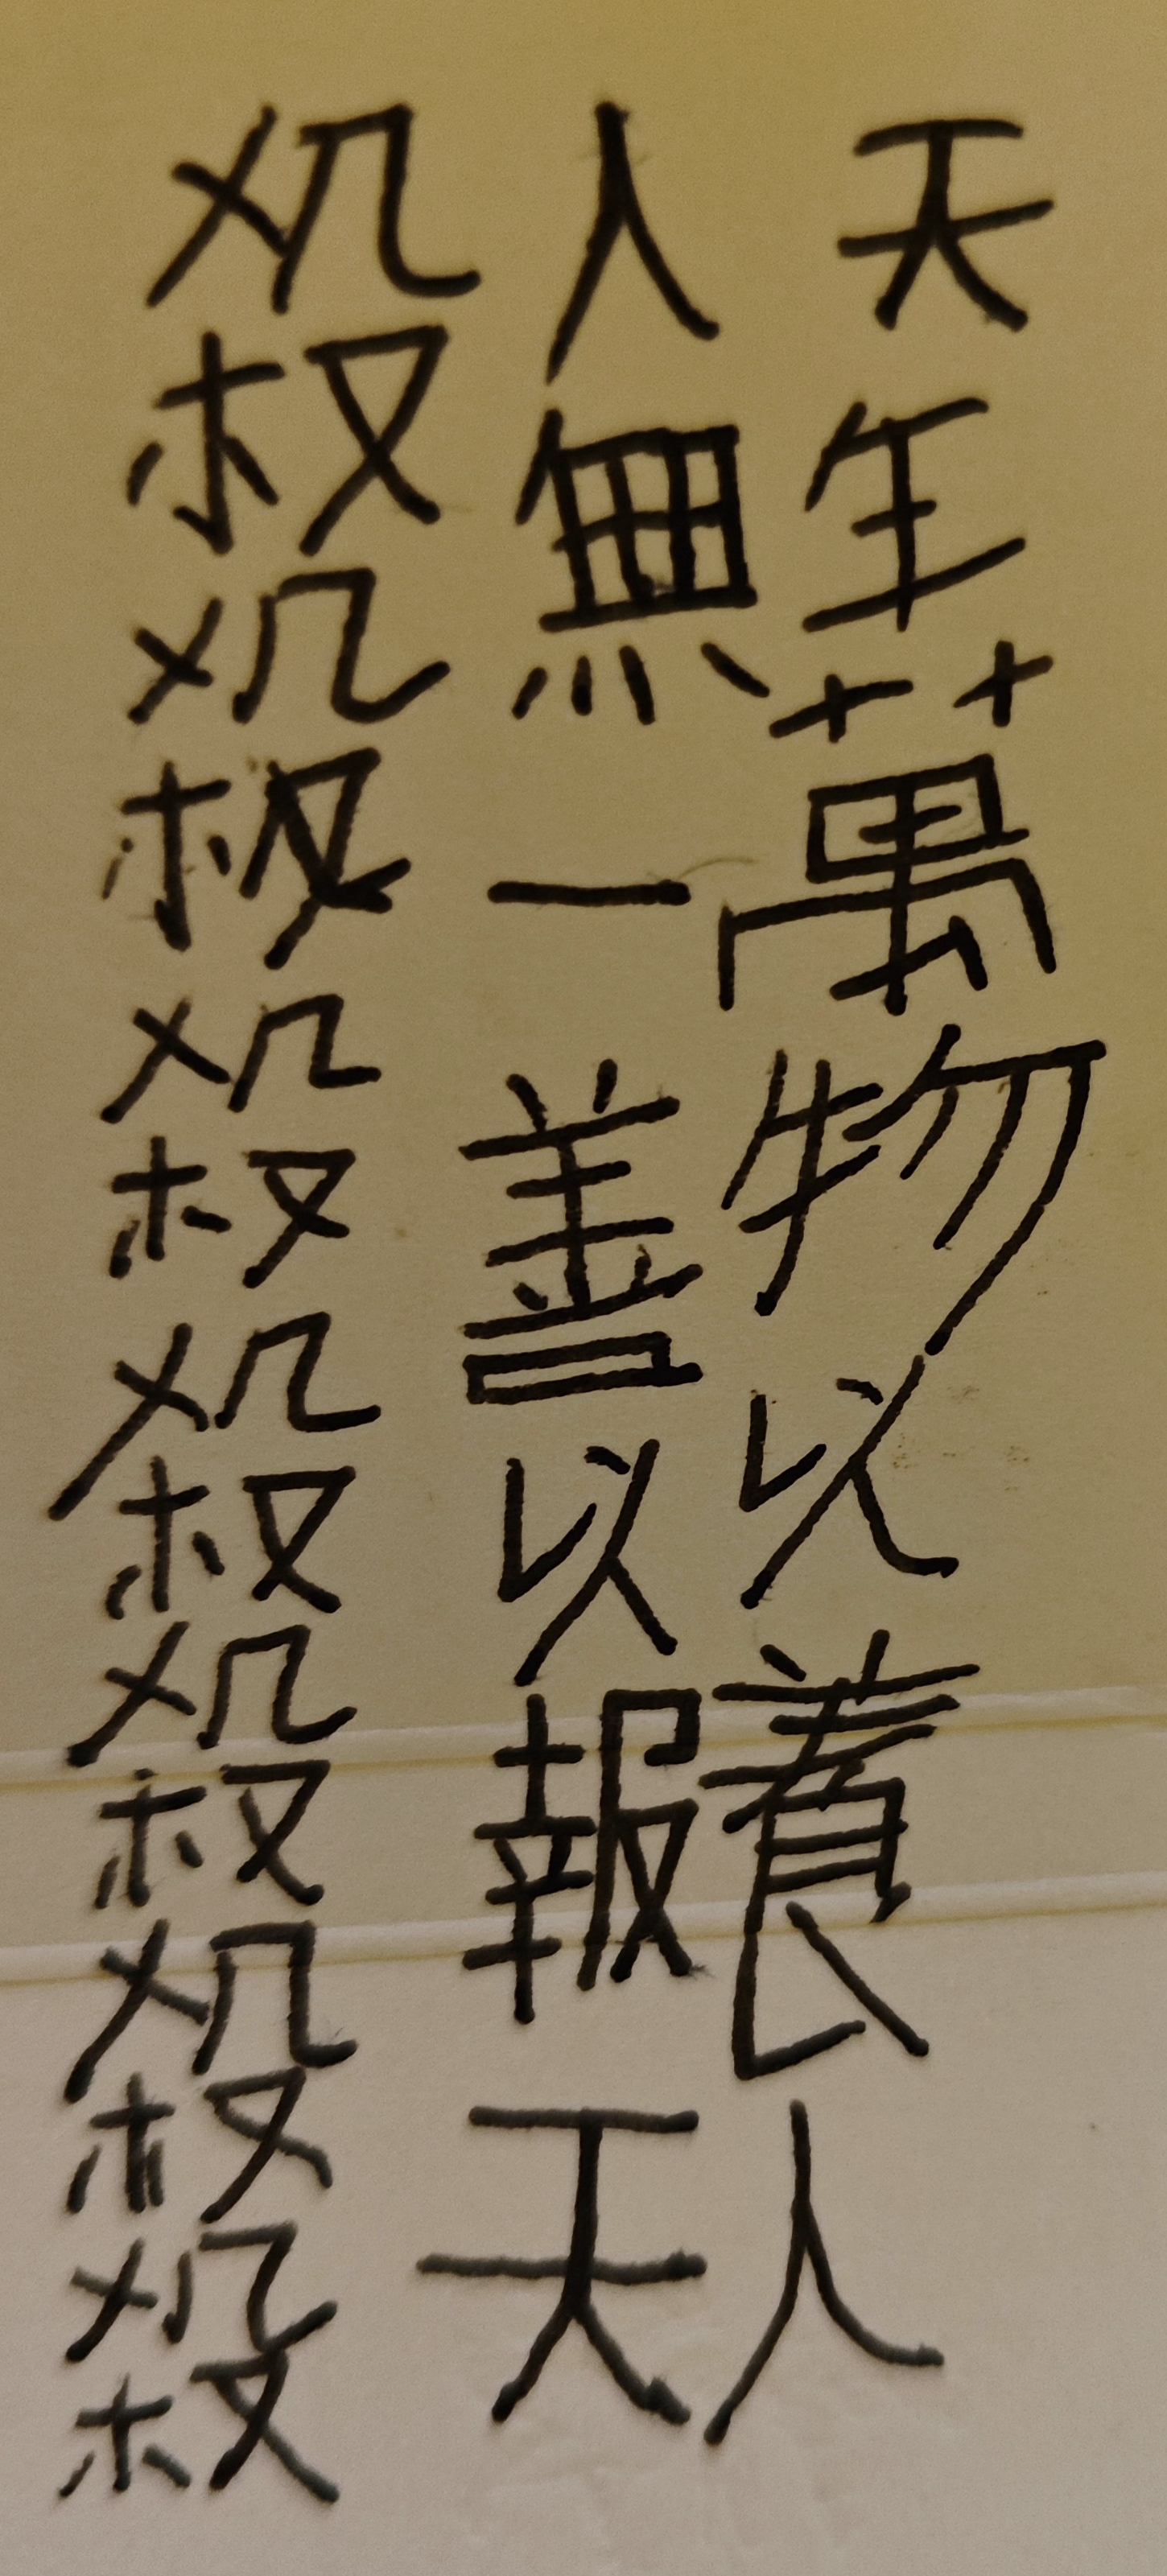 天生萬物以養人
人無一善以報天
殺殺殺殺殺殺殺